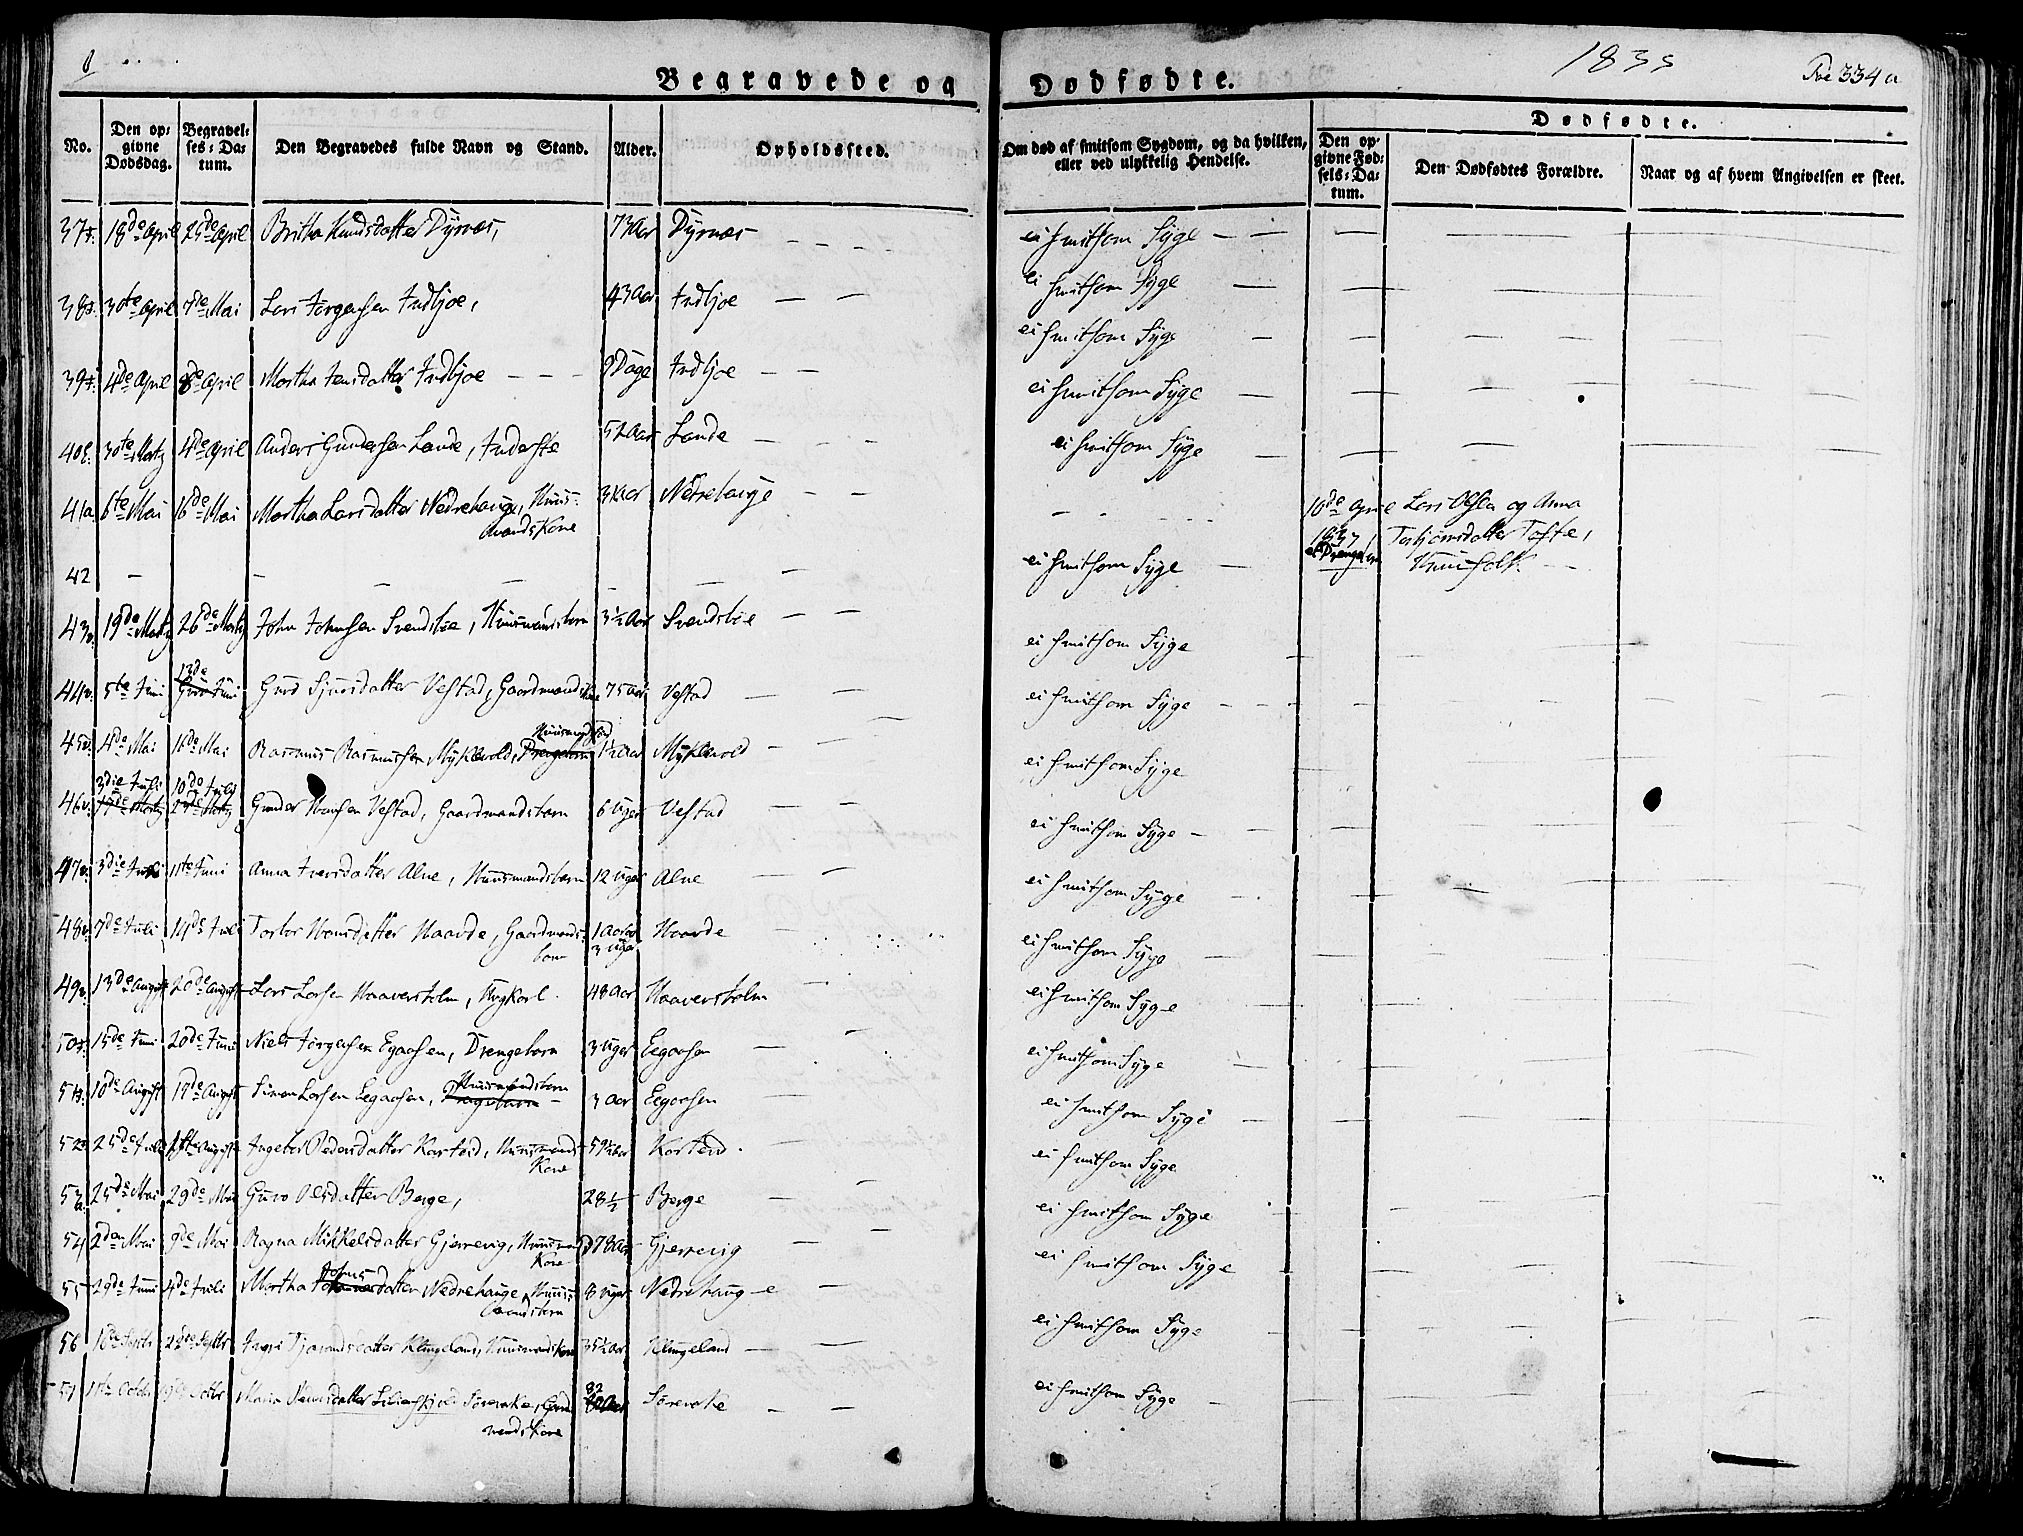 Begravede og Dødfødte.
1835
334 a
No.
Den opgivne Dødsdag.
Begravelses-Datum.
Den Begravedes fulde Navn og Stand.
Alder.
Opholdssted.
Om død af smitsom Sygdom, og da hvilken, eller ved ulykkelig Hendelse.
Dødfødte.
Den opgivne Fødsels-Datum.
Den Dødfødtes Forældre.
Naar og af hvem Angivelsen er skeet.
37 18de April 25de April Britha Knudsdatter Dyrnæs, 73 Aar Dyrnæs ei smitsom Syge
38 30te April 7de Mai Lars Jørgensen Indbjoe, 43 Aar Indbjoe ei smitsom Syge
39 4de April 8de April Martha Jensdatter Indbjoe 9 Dage Indbjoe ei smitsom Syge
40 30te Martz 4de April Anders Gundersen Lande, Inderste 52 Aar Lande ei smitsom Syge
41 6te Mai 16de Mai Martha Larsdatter Nedrehauge, Huus-
mands Kone 31 Aar Nedrehauge ei smitsom Syge
42 10de April Lars Olsen og Anna
Torbjørnsdatter Tofte,
Huusfolk
43 19de Martz 26de Martz John Johnsen Svendsbøe, Huusmandsbarn 3½ Aar Svendsbøe ei smitsom Syge
44 5te Juni 13de Juni Guro Sjursdatter Vestad, Gaardmands 75 Aar Vestad ei smitsom Syge
45 4de Mai 16de Mai Rasmus Rasmussen Myklevold, Drengebarn 1½ Aar Myklevold ei smitsom Syge
46 3die Juli 10de Juli Gunder Hansen Vestad, Gaardmandsbarn 6 Uger Vestad ei smitsom Syge
47 3die Juni 11te Juni Anna Iversdatter Alne, Huusmandsbarn 12 Uger Alne ei smitsom Syge
48 7de Juli 14de Juli Torbor Hansdatter Haavde, Gaardmands-
barn 1 Aar og
3 Uger Haavde ei smitsom Syge
49 13de August 20de August Lars Larsen Haaversholm, Ungkarl 48 Aar Haaversholm ei smitsom Syge
50 15de Juni 20de Juni Niels Jørgensen Egaasen, Drengebarn 3 Uger Eegaasen ei smitsom Syge
51 10de August 17de August Simon Larsen Eegaasen, Huusmandsbarn 3 Aar Eegaasen ei smitsom Syge
52 25de Juli August Ingebor Pedersdatter Karteid, Huusmands
Kone 59½ Aar Karteid ei smitsom Syge
53 25de Mai 29de Mai Guro Olsdatter Berge, 28½ Berge ei smitsom Syge
54 2den Mai 9de Mai Ragna Mikkelsdatter Gjerrevig, Huusmands
Kone 78 Aar Gjerrevig ei smitsom Syge
55 29de Juni 4de Juli Martha Johnsdatter Nedrehauge, Huus-
mandsbarn 8 Uger Nedrehauge ei smitsom Syge
56 16de Septbr 22de Septbr Tjerandsdatter Klingeland, Huusmandskone 35½ Aar Klingeland ei smitsom Syge
57 11te Octbr 19de Octbr Maria Sørevåke, Gaard-
mands Kone 82 Aar Sørevake ei smitsom Syge